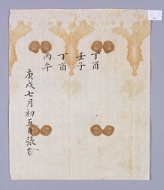 丁酉
壬子
丁酉
丙午
庚戌七月初五日張宅